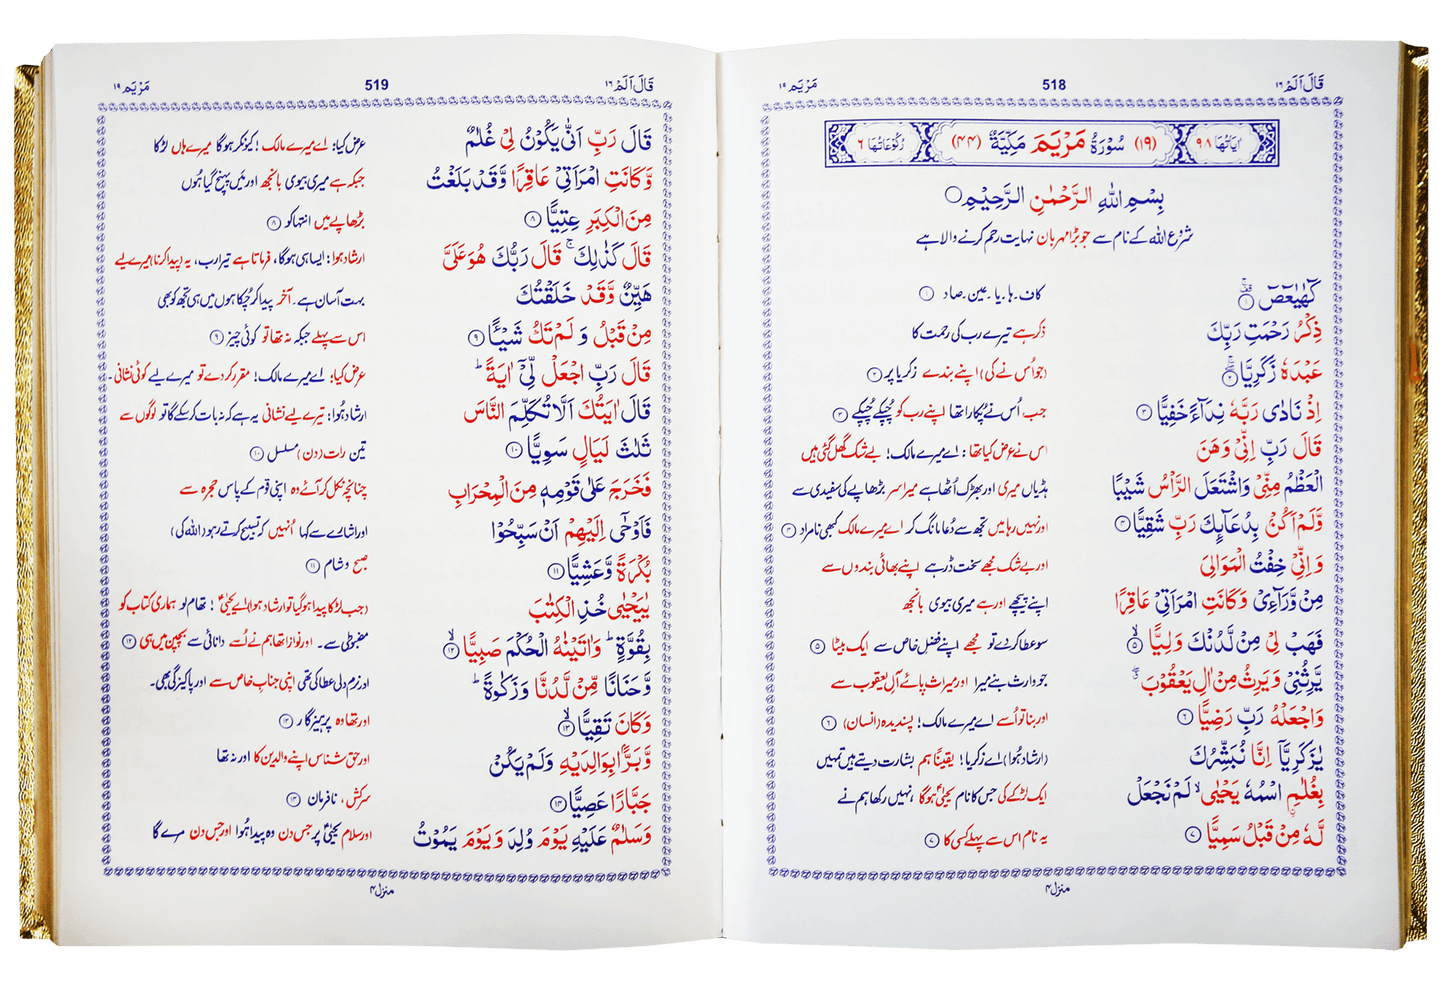 قَالَ اَلَمْ ١٦
518
مَرْيَم ١٩
اٰيَاتُهَا ٩٨
(١٩) سُوْرَةُ مَرْيَمَ مَكِّيَّةٌ (٤٤)
رُكُوْعَاتُهَا ٦
بِسْمِ اللّٰهِ الرَّحْمٰنِ الرَّحِيْمِ
شروع اللہ کے نام سے جو بڑا مہربان نہایت رحم کرنے والا ہے
كٓهٰيٰعٓصٓ ١ کاف۔ہا۔یا۔عین۔صاد ١
ذِكْرُ رَحْمَتِ رَبِّكَ ذکر ہے تیرے رب کی رحمت کا
عَبْدَهٗ زَكَرِيَّا ٢ (جو اُس نے کی) اپنے بندے زکریا پر ٢
اِذْ نَادٰى رَبَّهٗ نِدَآءً خَفِيًّا ٣ جب اُس نے پکارا تھا اپنے رب کو چُپکے چُپکے ٣
قَالَ رَبِّ اِنِّيْ وَهَنَ اس نے عرض کیا تھا: اے میرے مالک! بے شک گھل گئی ہیں
الْعَظْمُ مِنِّيْ وَاشْتَعَلَ الرَّاْسُ شَيْبًا ہڈیاں میری اور بھڑک اُٹھا ہے میرا سر بڑھاپے کی سفیدی سے
وَّلَمْ اَكُنْۢ بِدُعَآىِٕكَ رَبِّ شَقِيًّا ٤ اور نہیں رہا میں تجھ سے دُعا مانگ کر اے میرے مالک کبھی نامراد ٤
وَاِنِّيْ خِفْتُ الْمَوَالِيَ اور بے شک مجھے سخت ڈر ہے اپنے بھائی بندوں سے
مِنْ وَّرَآءِيْ وَكَانَتِ امْرَاَتِيْ عَاقِرًا اپنے پیچھے اور ہے میری بیوی بانجھ
فَهَبْ لِيْ مِنْ لَّدُنْكَ وَلِيًّا ٥ سو عطا کر دے تو مجھے اپنے فضل خاص سے ایک بیٹا ٥
يَّرِثُنِيْ وَيَرِثُ مِنْ اٰلِ يَعْقُوْبَ جو وارث بنے میرا اور میراث پائے آلِ یعقوب سے
وَاجْعَلْهُ رَبِّ رَضِيًّا ٦ اور بنا تو اُسے اے میرے مالک! پسندیدہ (انسان) ٦
يٰزَكَرِيَّآ اِنَّا نُبَشِّرُكَ (ارشاد ہُوا) اے زکریا! یقینًا ہم بشارت دیتے ہیں تمہیں
بِغُلٰمِ اسْمُهٗ يَحْيٰى لَمْ نَجْعَلْ ایک لڑکے کی جس کا نام یحییٰ ہوگا، نہیں رکھا ہم نے
لَّهٗ مِنْ قَبْلُ سَمِيًّا ٧ یہ نام اس سے پہلے کسی کا ٧
منزل ٤
قَالَ اَلَمْ ١٦
519
مَرْيَم ١٩
قَالَ رَبِّ اَنّٰى يَكُوْنُ لِيْ غُلٰمٌ عرض کیا: اے میرے مالک! کیونکر ہوگا میرے ہاں لڑکا
وَّكَانَتِ امْرَاَتِيْ عَاقِرًا وَّقَدْ بَلَغْتُ جبکہ ہے میری بیوی بانجھ اور میں پہنچ گیا ہُوں
مِنَ الْكِبَرِ عِتِيًّا ٨ بڑھاپے میں انتہا کو ٨
قَالَ كَذٰلِكَ قَالَ رَبُّكَ هُوَ عَلَيَّ ارشاد ہوا: ایسا ہی ہوگا، فرماتا ہے تیرا رب، یہ (پیدا کرنا) میرے لیے
هَيِّنٌ وَّقَدْ خَلَقْتُكَ بہت آسان ہے۔ آخر پیدا کر چُکا ہوں میں ہی تجھ کو بھی
مِنْ قَبْلُ وَلَمْ تَكُ شَيْـًٔا ٩ اس سے پہلے جبکہ نہ تھا تو کوئی چیز ٩
قَالَ رَبِّ اجْعَلْ لِّيْٓ اٰيَةً عرض کیا: اے میرے مالک! مقرر کر دے تو میرے لیے کوئی نشانی۔
قَالَ اٰيَتُكَ اَلَّا تُكَلِّمَ النَّاسَ ارشاد ہُوا: تیرے لیے نشانی یہ ہے کہ نہ بات کر سکے گا تو لوگوں سے
ثَلٰثَ لَيَالٍ سَوِيًّا ١٠ تین رات (دن) مسلسل ١٠
فَخَرَجَ عَلٰى قَوْمِهٖ مِنَ الْمِحْرَابِ چنانچہ نکل کر آئے وہ اپنی قوم کے پاس حجرہ سے
فَاَوْحٰٓى اِلَيْهِمْ اَنْ سَبِّحُوْا اور اشارے سے کہا اُنہیں کہ تسبیح کرتے رہو (اللہ کی)
بُكْرَةً وَّعَشِيًّا ١١ صبح و شام ١١
يٰيَحْيٰى خُذِ الْكِتٰبَ (جب لڑکا پیدا ہو گیا تو ارشاد ہوا) اے یحییٰ! تھام لو ہماری کتاب کو
بِقُوَّةٍ وَاٰتَيْنٰهُ الْحُكْمَ صَبِيًّا ١٢ مضبوطی سے۔ اور نوازا تھا ہم نے اُسے دانائی سے بچپن میں ہی ١٢
وَّحَنَانًا مِّنْ لَّدُنَّا وَزَكٰوةً اور نرم دلی عطا کی تھی اپنی جناب خاص سے اور پاکیزگی بھی۔
وَكَانَ تَقِيًّا ١٣ اور تھا وہ پرہیزگار ١٣
وَّبَرًّۢا بِوَالِدَيْهِ وَلَمْ يَكُنْ اور حق شناس اپنے والدین کا اور نہ تھا
جَبَّارًا عَصِيًّا ١٤ سرکش، نافرمان ١٤
وَسَلٰمٌ عَلَيْهِ يَوْمَ وُلِدَ وَيَوْمَ يَمُوْتُ اور سلام یحییٰ پر جس دن وہ پیدا ہُوا اور جس دن مرے گا
منزل ٤